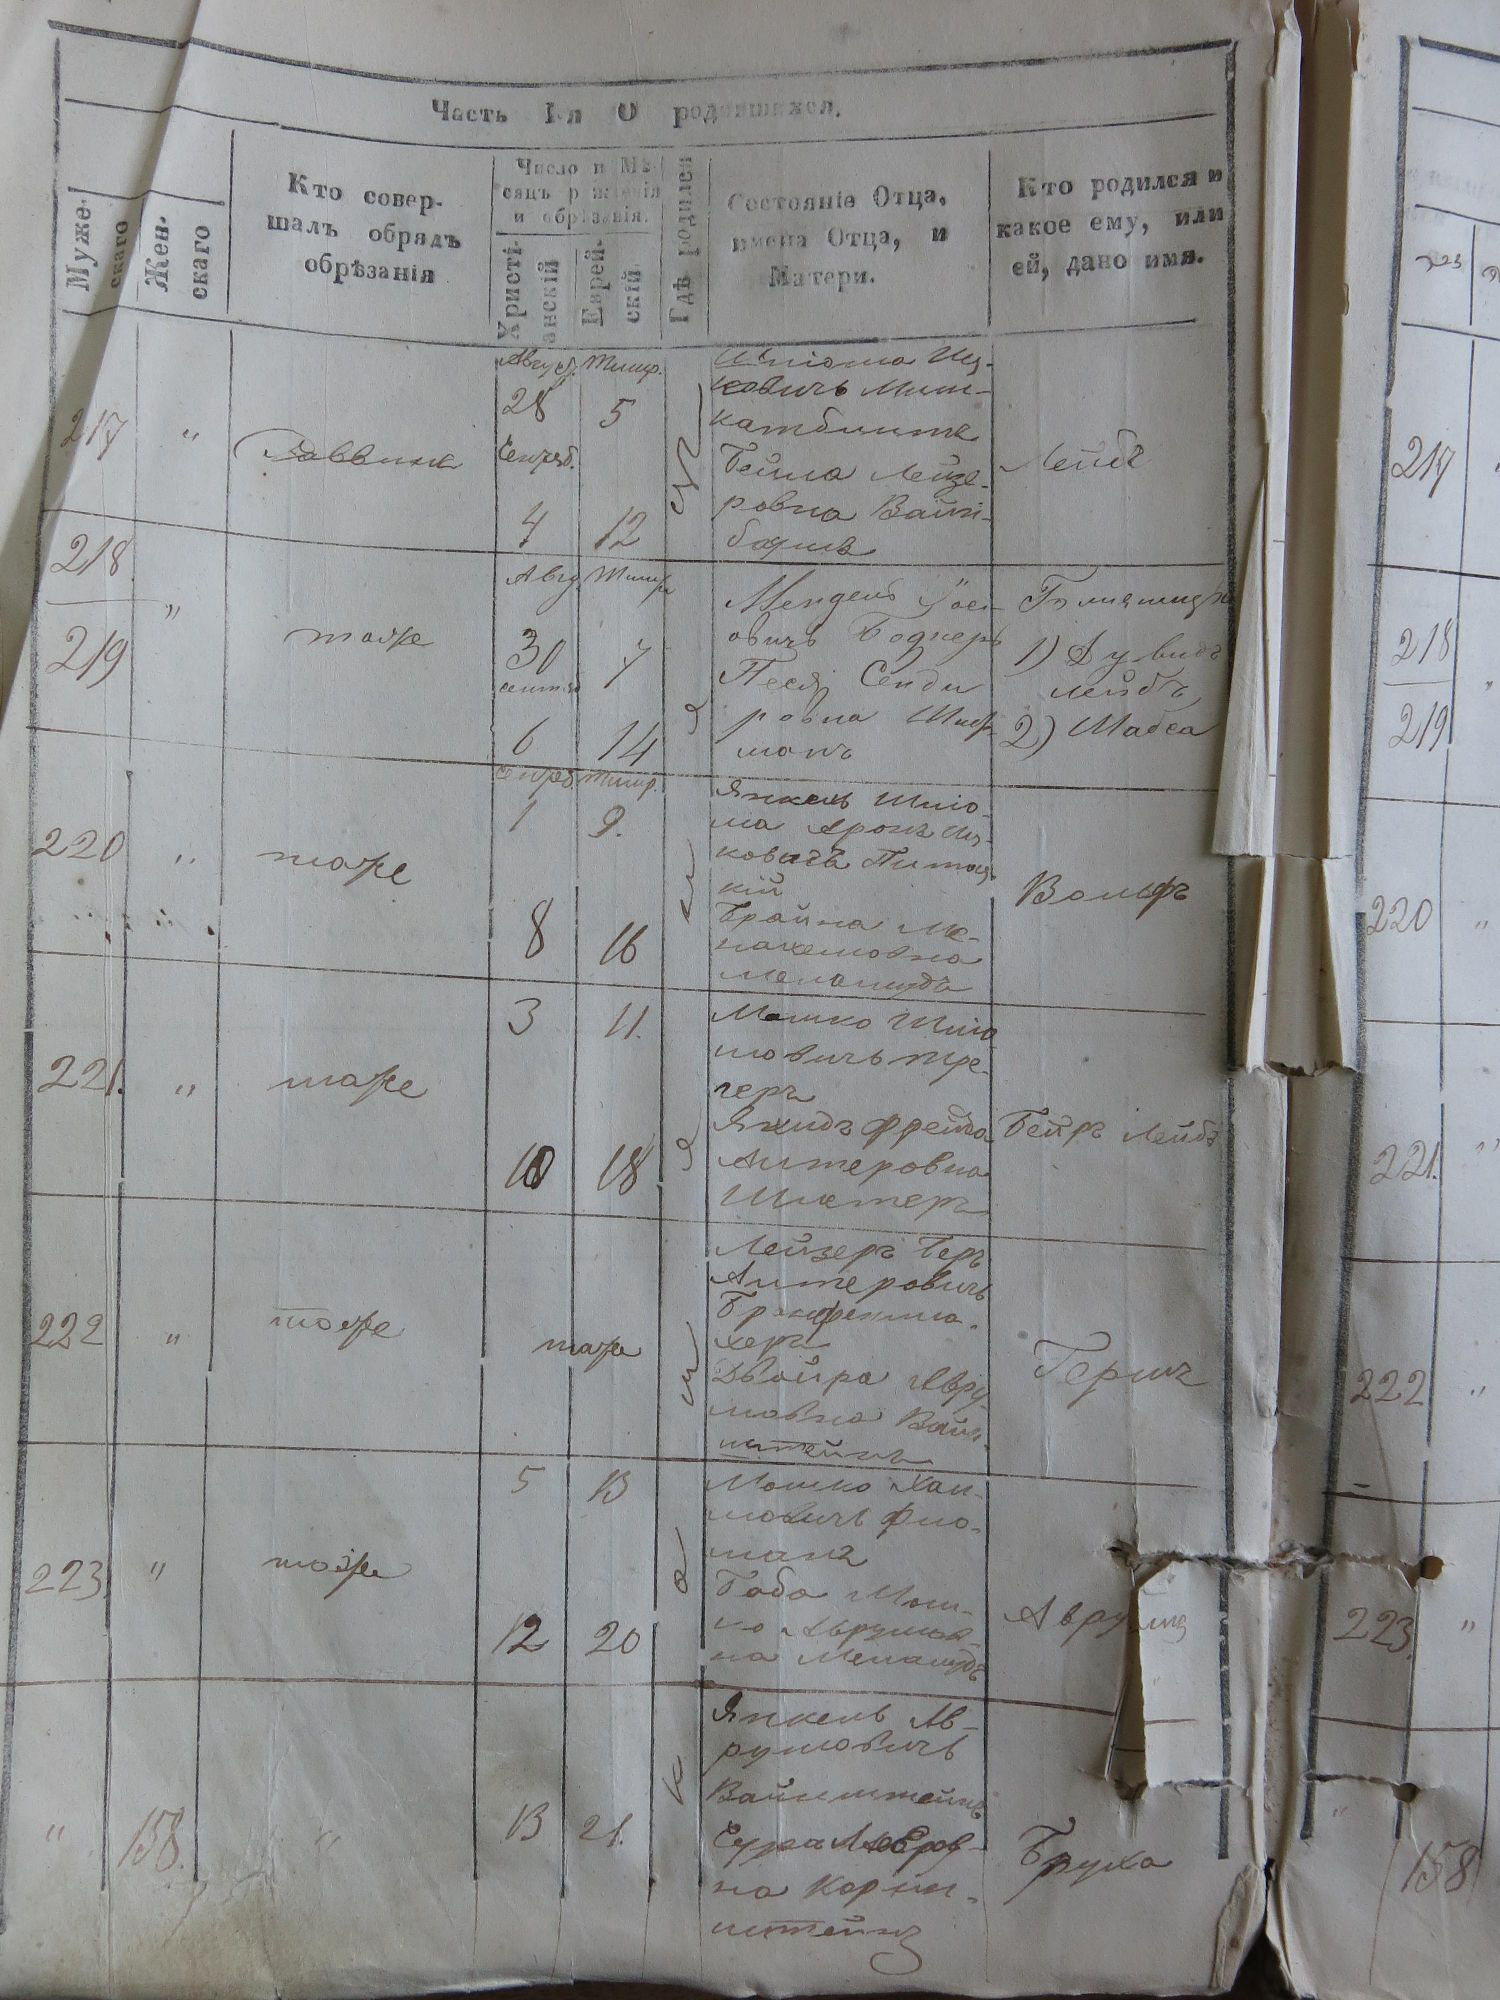 Часть I-я О родившихся.
Муже-
скаго
Жен-
скаго
Кто совер-
шалъ обрядъ
обрѣзанія
Число и Мѣ-
сяцъ рожденія
и обрѣзанія.
Христі-
анскій
Еврей-
скій
Гдѣ родился
Состояніе Отца,
имена Отца, и
Матери.
Кто родился и
какое ему, или
ей, дано имя.
217
"
Раввинъ
Август. Тишр.
28 5
Сентяб.
4 12
Шліома Иц-
ковичъ Мит-
Бейла Лейзе-
ровна Вайн-
Лейбъ
218
219
"
тоже
Авгу. Тишр.
30 7
сентяб
6 14
Мендель Йос-
овичъ Боднеръ
Песя Сенди
ровна
манъ
1) Дувидъ
Лейбъ
2) Шабса
220
"
тоже
Сентяб. Тишр.
1 9.
8 16
Янкель Шліо-
ма Аронъ Иц-
ковичъ
кій
Брайна Ме-
нахемовна
Меламудъ
Вольфъ
221.
"
тоже
3 11.
10 18
Мошко Шліо
мовичъ Тре-
геръ
Фрейда
Алтеровна
Шехтеръ
Бейръ Лейбъ
222
"
тоже
тоже
Лейзеръ Беръ
Алтеровичъ
херъ
Двойра Авру-
мовна Вайн-
штейнъ
Гершъ
223
"
тоже
5 13
12 20
Мошко Хаи-
мовичъ
манъ
Баба Мош-
ко Аврумов-
на Меламудъ
Аврумъ
"
158.
"
13 21.
Янкель Ав-
румовичъ
Вайнштейнъ
Сура
на Корин-
штейнъ
Бруха
217
218
219
220
"
221.
"
222
"
223.
"
"
158